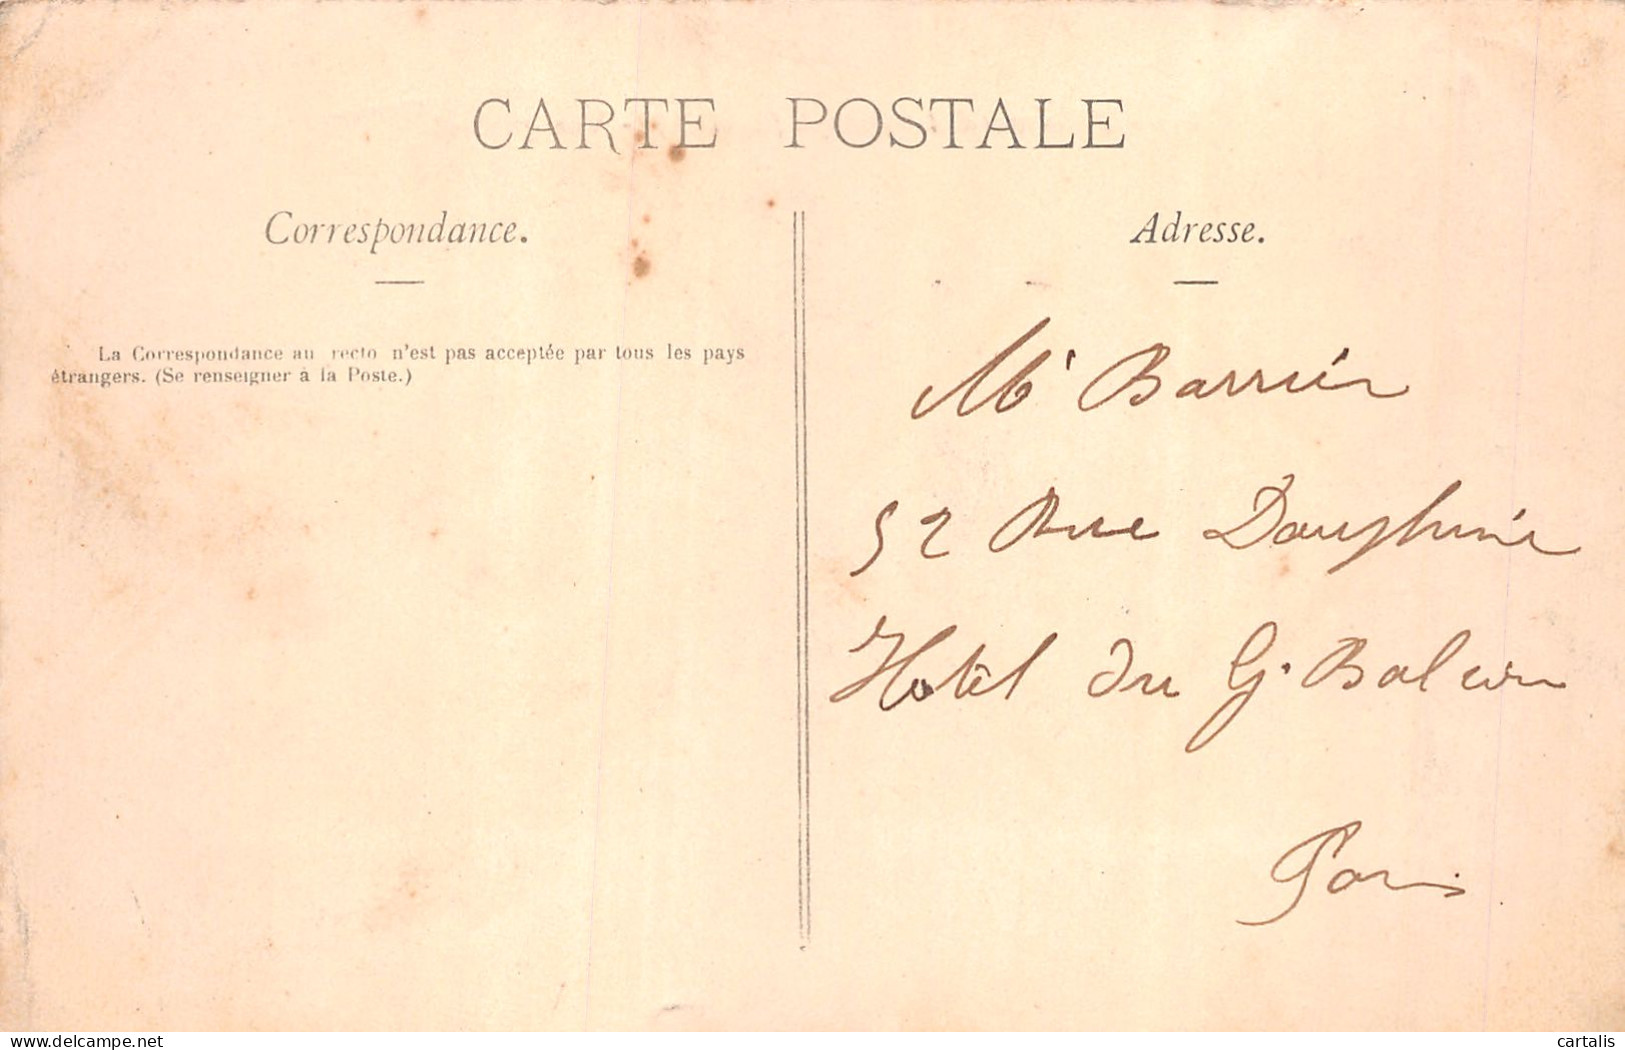 CARTE POSTALE
Correspondance.
La Correspondance au recto n'est pas acceptée par tous les pays
étrangers. (Se renseigner à la Poste.)
Adresse.
Mr Barrier
52 Rue Dauphine
Hôtel du G. Balcon
Paris
delcampe.net
cartalis